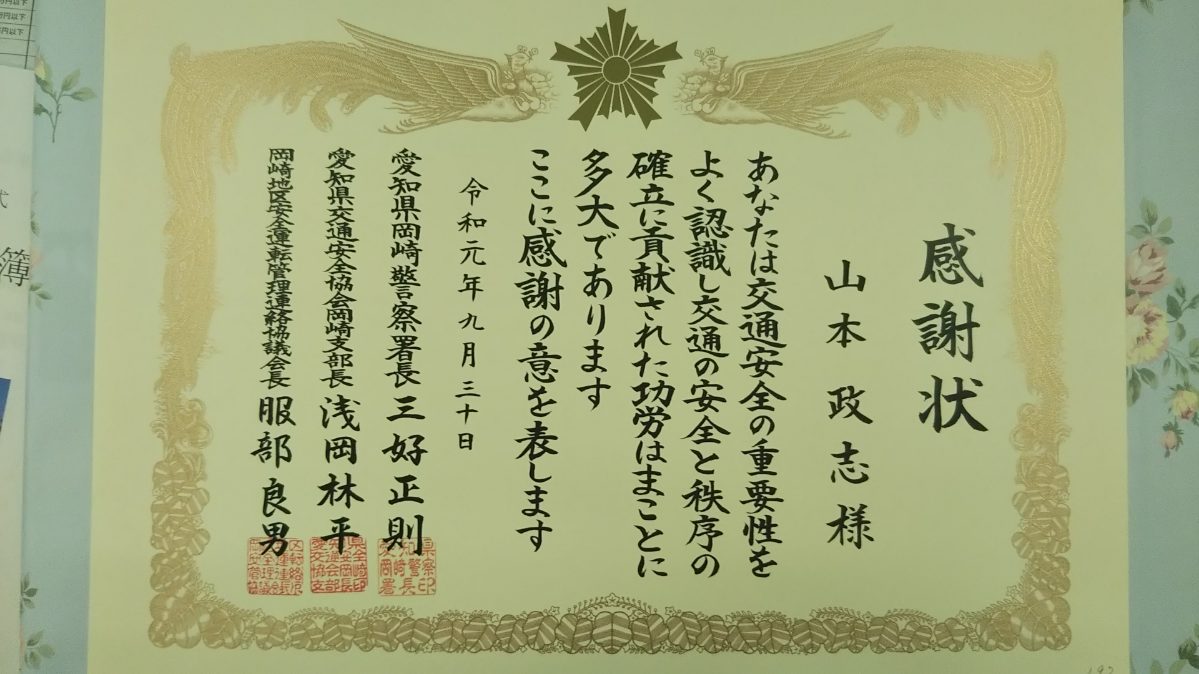 感謝状
山本政志様
あなたは交通安全の重要性を
よく認識し交通の安全と秩序の
確立に貢献された功労はまことに
多大であります
ここに感謝の意を表します
令和元年九月三十日
愛知県岡崎警察署長 三好正則
愛知県交通安全協会岡崎支部長 浅岡林平
岡崎地区安全運転管理連絡協議会長 服部良男
簿
円以下